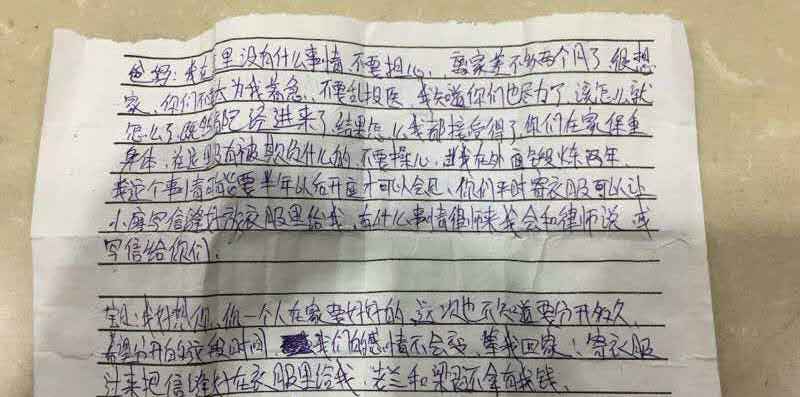 爸妈：我在里没有什么事情不要担心，离家差不多两个月了很想
家，你们不要太为我着急，不要乱投医，我知道你们也尽力了，该怎么就
怎么了既然已经进来了结果怎么我都接受得了，你们在家保重
身体，在这里没有被欺负什么的，不要操心，就我在外面锻炼两年
我这个事情可能要半年以后开庭才可以会见，你们平时寄衣服可以让
小 写信缝好放衣服里给我，有什么事情律师来我会和律师说，或
写信给你们，
我好想你，你一个人在家要好好的，这次也不知道要分开多久，
希望分开的这段时间 我们的感情不会变，等我回家！寄衣服
过来把信缝好在衣服里给我，老兰和 还拿有我钱，